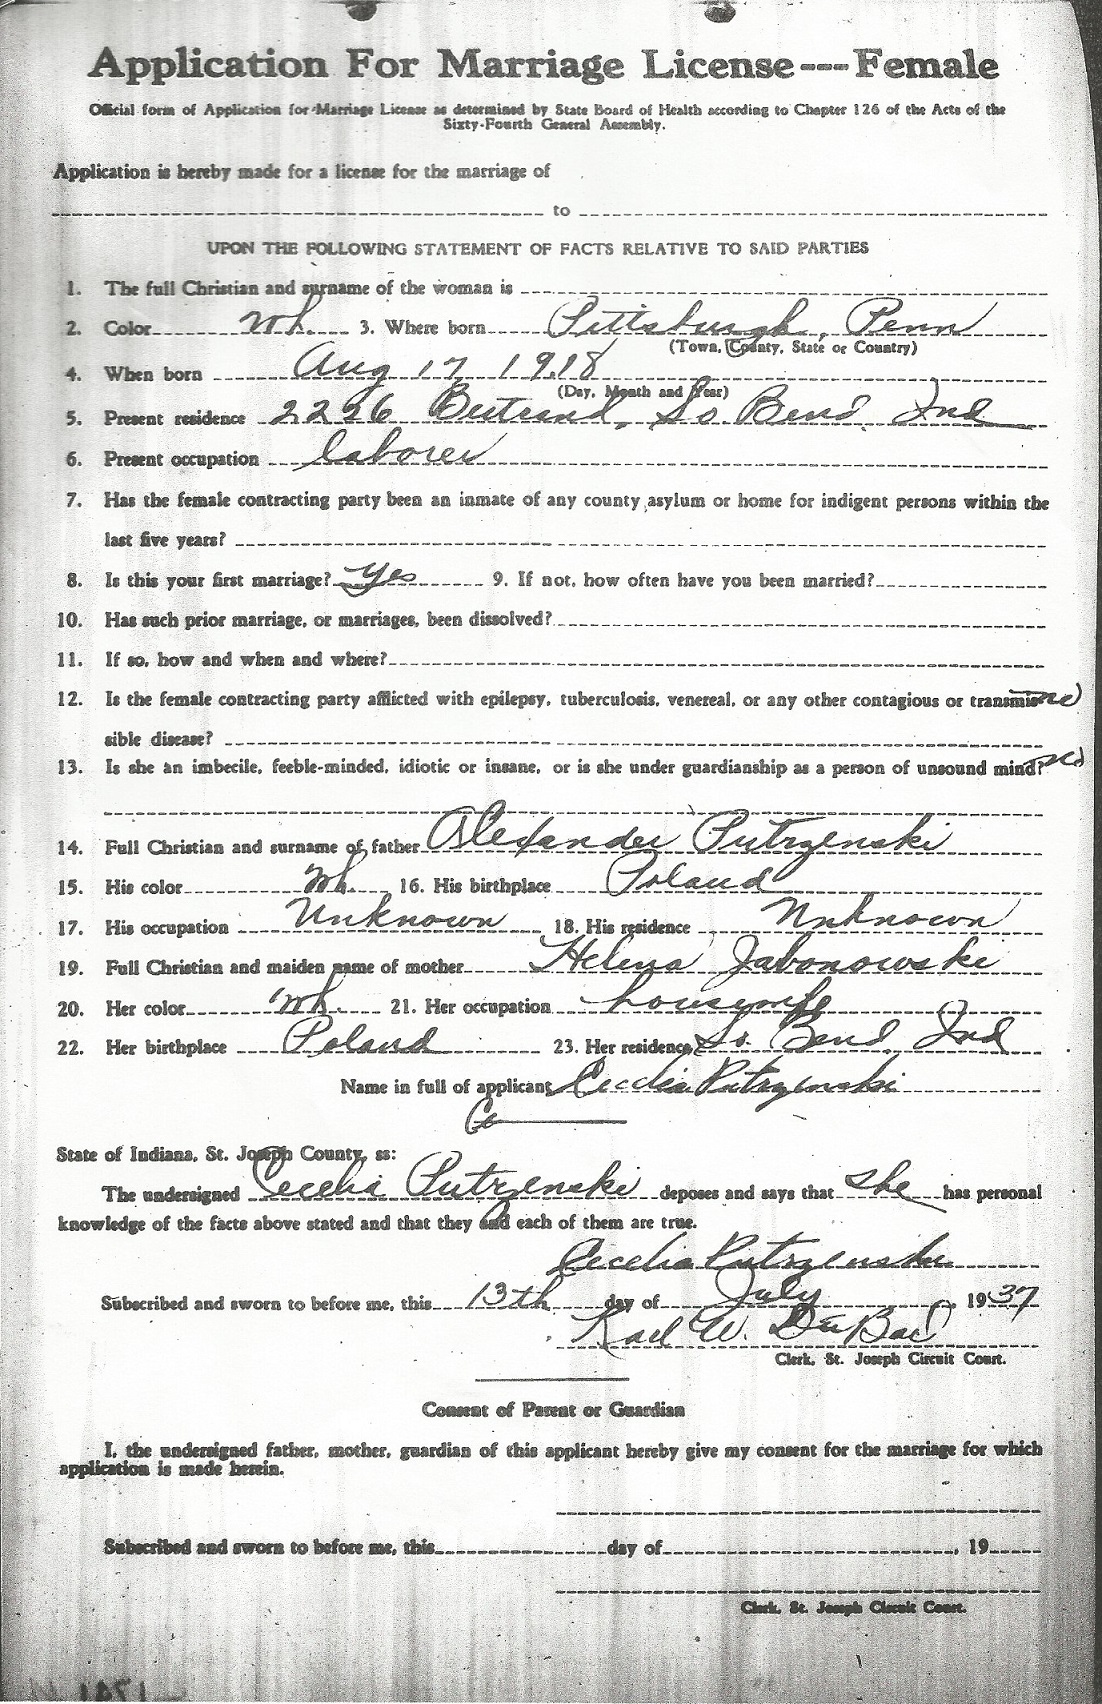 Application For Marriage License---Female
Official form of Application for Marriage License as determined by State Board of Health according to Chapter 126 of the Acts of the
Sixty-Fourth General Assembly.
Application is hereby made for a license for the marriage of
to
UPON THE FOLLOWING STATEMENT OF FACTS RELATIVE TO SAID PARTIES
1. The full Christian and surname of the woman is
2. Color Wh. 3. Where born Pittsburgh, Penn
(Town, County, State or Country)
4. When born Aug 17 1918
(Day, Month and Year)
5. Present residence 2226 Bertrand, So. Bend, Ind
6. Present occupation laborer
7. Has the female contracting party been an inmate of any county asylum or home for indigent persons within the
last five years?
8. Is this your first marriage? Yes 9. If not, how often have you been married?
10. Has such prior marriage, or marriages, been dissolved?
11. If so, how and when and where?
12. Is the female contracting party afflicted with epilepsy, tuberculosis, venereal, or any other contagious or transmis- no
sible disease?
13. Is she an imbecile, feeble-minded, idiotic or insane, or is she under guardianship as a person of unsound mind? no
14. Full Christian and surname of father Alexander Putrzenski
15. His color Wh. 16. His birthplace Poland
17. His occupation Unknown 18. His residence Unknown
19. Full Christian and maiden name of mother Helena Jabonowski
20. Her color Wh. 21. Her occupation housewife
22. Her birthplace Poland 23. Her residence So. Bend, Ind
Name in full of applicant Cecelia Putrzenski
State of Indiana, St. Joseph County, ss:
The undersigned Cecelia Putrzenski deposes and says that she has personal
knowledge of the facts above stated and that they and each of them are true.
Cecelia Putrzenski
Subscribed and sworn to before me, this 13th day of July, 1937
W.
Clerk, St. Joseph Circuit Court.
Consent of Parent or Guardian
I, the undersigned father, mother, guardian of this applicant hereby give my consent for the marriage for which
application is made herein.
Subscribed and sworn to before me, this day of , 19
Clerk, St. Joseph Circuit Court.